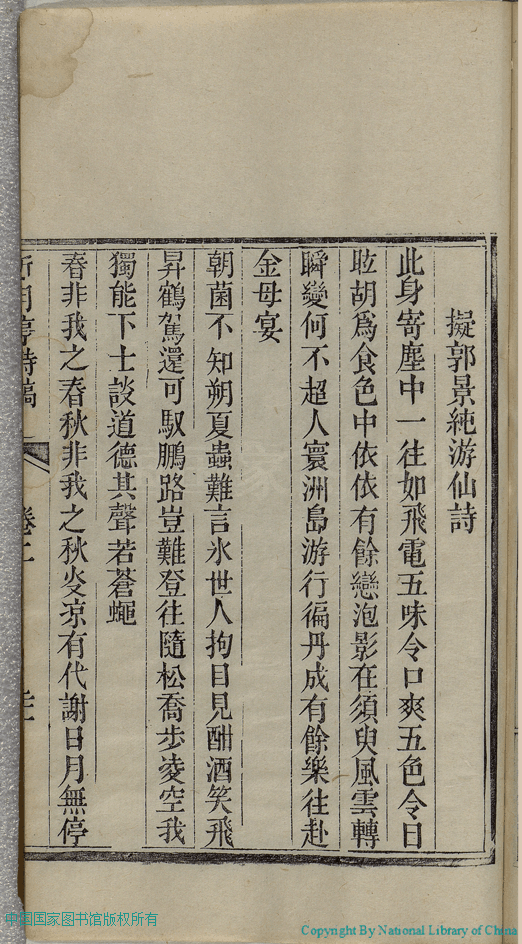 擬郭景純游仙詩
此身寄塵中一往如飛電五味令口爽五色令日
眩胡爲食色中依依有餘戀泡影在須臾風雲轉
瞬變何不超人寰洲島游行徧丹成有餘樂往赴
金母宴
朝菌不知朔夏蟲難言氷世人拘目見酣酒笑飛
昇鶴駕還可馭鵬路豈難登往隨松喬步凌空我
獨能下士談道德其聲若蒼蠅
春非我之春秋非我之秋炎凉有代謝日月無停
月亭詩稿 卷二
中国国家图书馆版权所有
Copyright By National Library of China